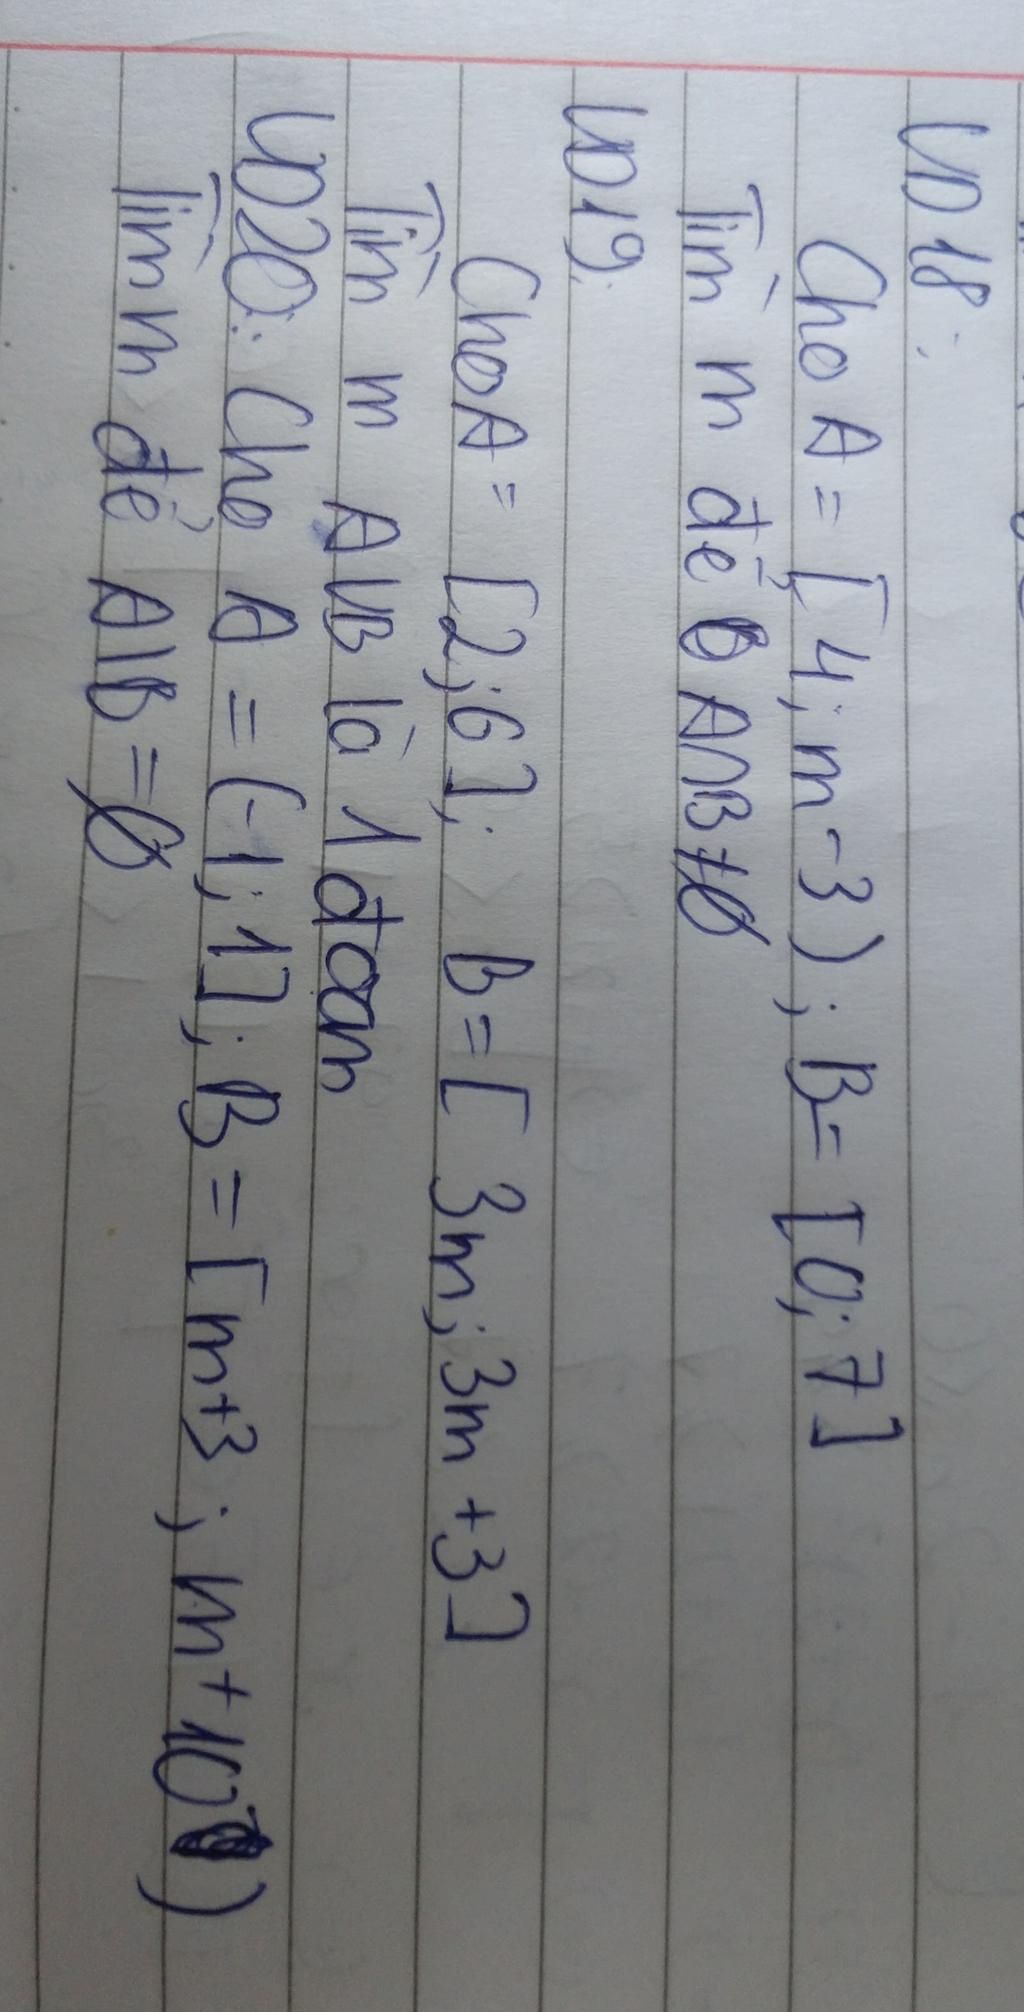 VD18:
Cho A = [4; m-3); B = [0; 7]
Tìm m để A∩B ≠ ∅
VD19:
Cho A = [2; 6]; B = [3m; 3m+3]
Tìm m A∪B là 1 đoan
VD20: Cho A = (-1; 1]; B = [m+3; m+10)
Tìm m để A\B = ∅